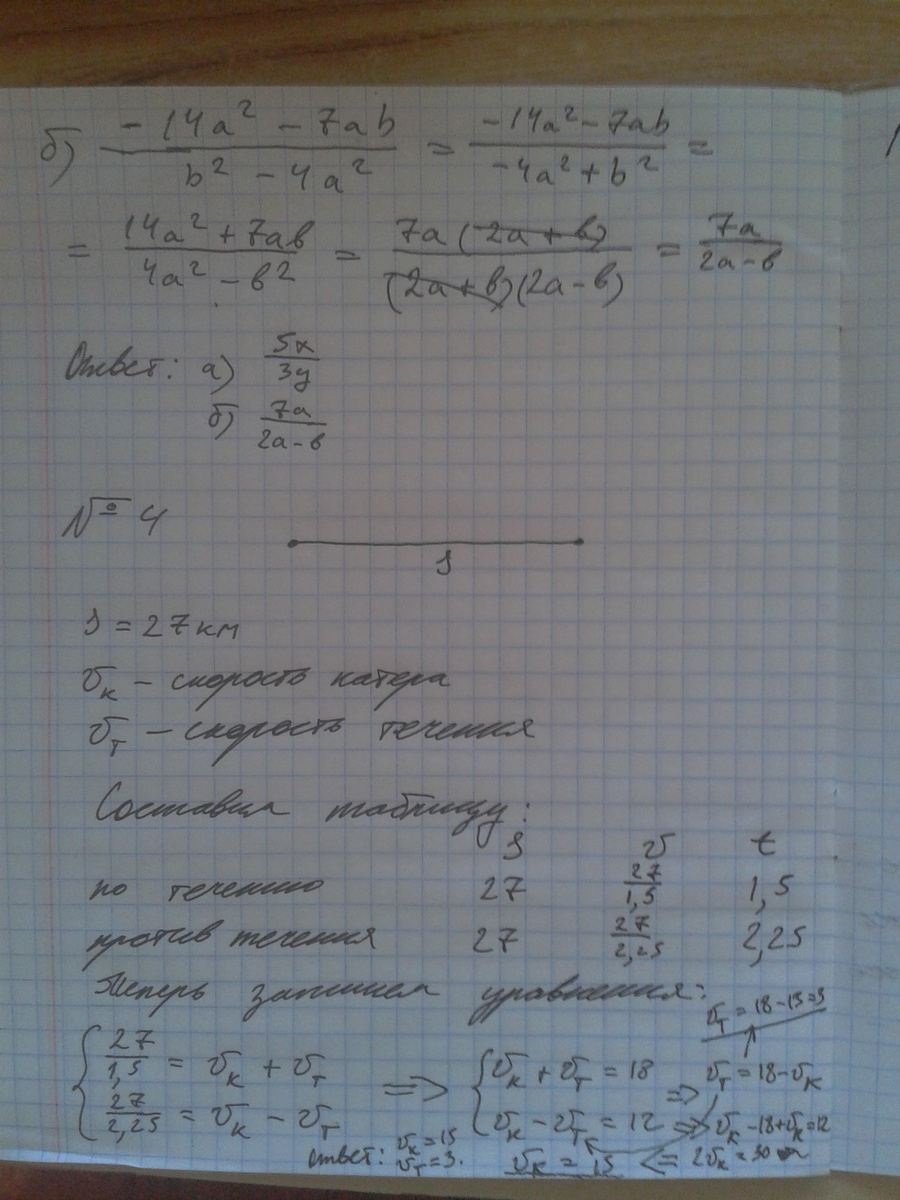 б) (-14a² - 7ab)/(b² - 4a²) = (-14a² - 7ab)/(-4a² + b²) =
= (14a² + 7ab)/(4a² - b²) = 7a(2a + b)/((2a + b)(2a - b)) = 7a/(2a - b)
Ответ: а) 5x/3y
б) 7a/(2a - b)
№ 4
S
S = 27 км
Vк - скорость катера
Vт - скорость течения
Составим таблицу:
S V t
по течению 27 27/1,5 1,5
против течения 27 27/2,25 2,25
Теперь запишем уравнения:
Vт = 18 - 15 = 3
{ 27/1,5 = Vк + Vт => { Vк + Vт = 18 => Vт = 18 - Vк
27/2,25 = Vк - Vт Vк - Vт = 12 => Vк - 18 + Vк = 12
Ответ: Vк = 15 Vт = 3. Vк = 15 <= 2Vк = 30